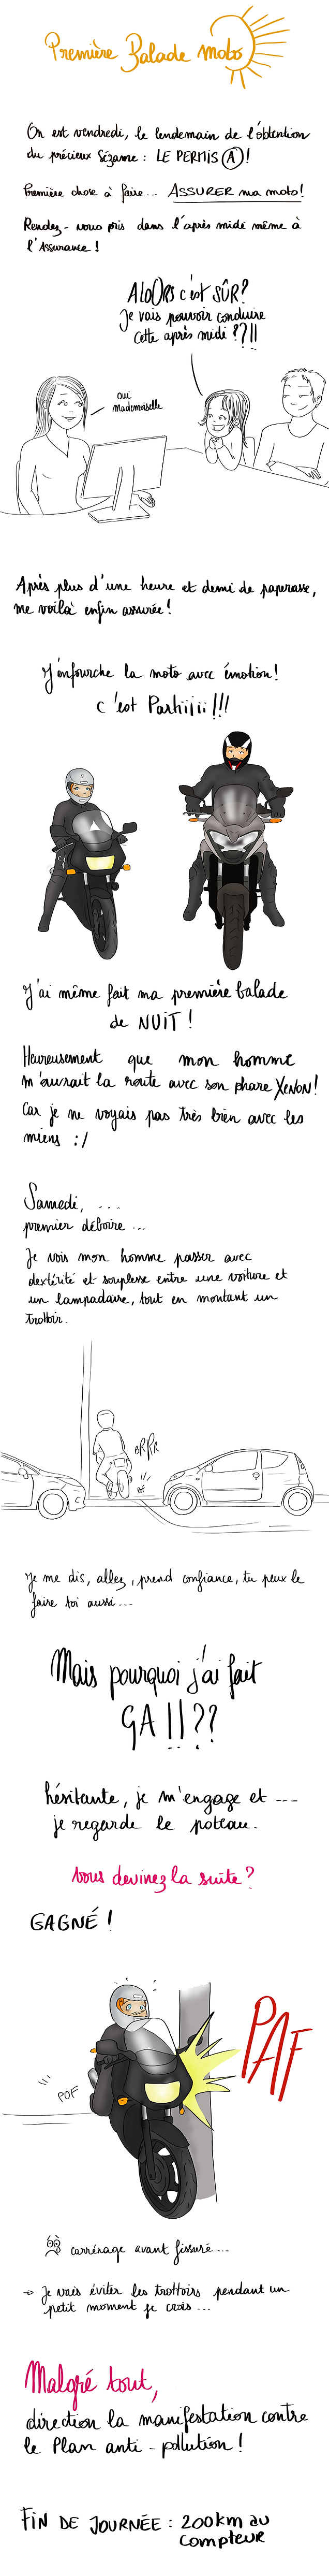 Première Balade moto
On est vendredi, le lendemain de l'obtention
du précieux Sézame : LE PERMIS A !
Première chose à faire... ASSURER ma moto !
Rendez-vous pris dans l'après midi même à
l'Assurance !
ALOORS c'est SÛR?
Je vais pouvoir conduire
cette après midi ??!!
oui
mademoiselle
Après plus d'une heure et demi de paperasse,
me voilà enfin assurée !
J'enfourche la moto avec émotion !
C'est Partiiiii !!!
J'ai même fait ma première balade
de NUIT !
Heureusement que mon homme
m'ouvrait la route avec son phare XENON !
Car je ne voyais pas très bien avec les
miens :/
Samedi, ...
premier déboire ...
Je vois mon homme passer avec
dextérité et souplesse entre une voiture et
un lampadaire, tout en montant un
trottoir.
BRRR
POF
Je me dis, allez, prend confiance, tu peux le
faire toi aussi ...
Mais pourquoi j'ai fait
ÇA !!??
hésitante, je m'engage et ...
je regarde le poteau.
Vous devinez la suite ?
GAGNÉ !
PAF
POF
carrénage avant fissuré ...
→ Je vais éviter les trottoirs pendant un
petit moment je crois ...
Malgré tout,
direction la manifestation contre
le Plan anti-pollution !
FIN DE JOURNÉE : 200km au
compteur